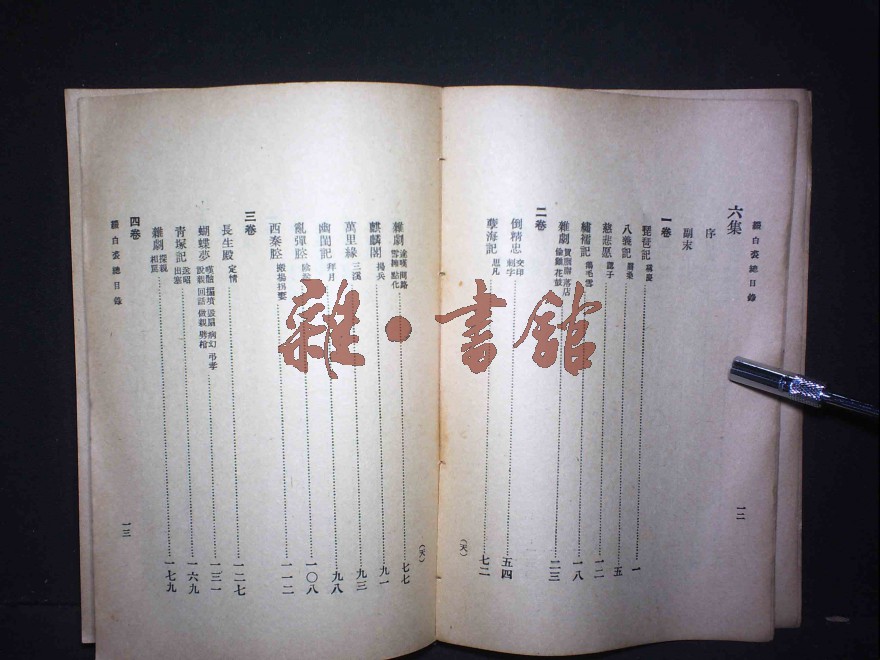 綴白裘總目錄
一二
六集
序
副末
一卷
琵琶記 ……一
八義記 ……五
慈悲愿 認子……一二
繡襦記 ……一八
雜劇 ……二三
二卷
倒精忠 交印 刺字……五四
孽海記 思凡……七二
(天)
雜劇 ……七七
(天)
麒麟閣 揚兵……九一
萬里緣 三溪……九三
幽閨記 拜月……九八
亂彈腔 ……一〇八
西秦腔 搬場拐妻……一一二
三卷
長生殿 定情……一二七
蝴蝶夢 嘆骷 搧墳 毀扇 病幻 弔孝 說親 回話 做親 劈棺……一三一
青塚記 送昭 出塞……一六九
雜劇 探親 相罵……一七九
四卷
綴白裘總目錄
一三
雜·書館